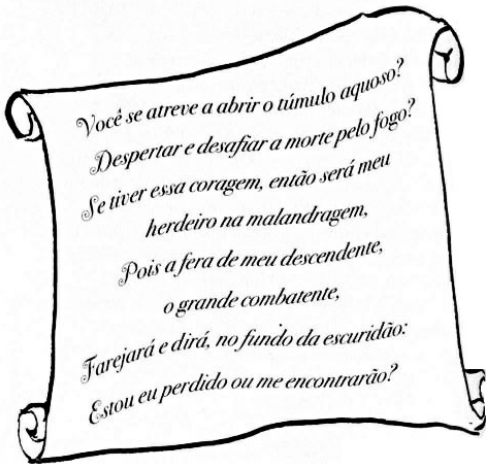 Você se atreve a abrir o túmulo aquoso?
Despertar e desafiar a morte pelo fogo?
Se tiver essa coragem, então será meu
herdeiro na malandragem,
Pois a fera de meu descendente,
o grande combatente,
Farejará e dirá, no fundo da escuridão:
Estou eu perdido ou me encontrarão?